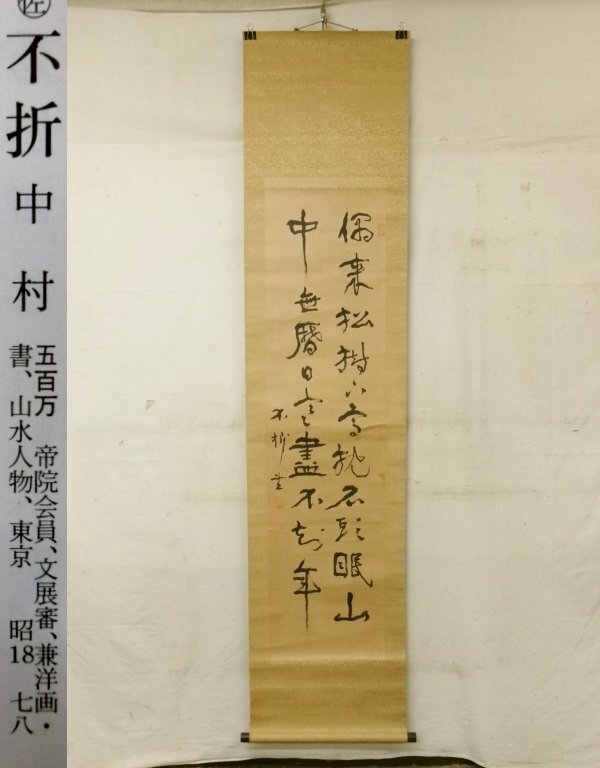 佐
不折
中村
五百万 帝院会員、文展審、兼洋画・
書、山水人物、東京 昭18 七八
偶来松樹下高枕石頭眠山
中無暦日寒盡不知年
不折書